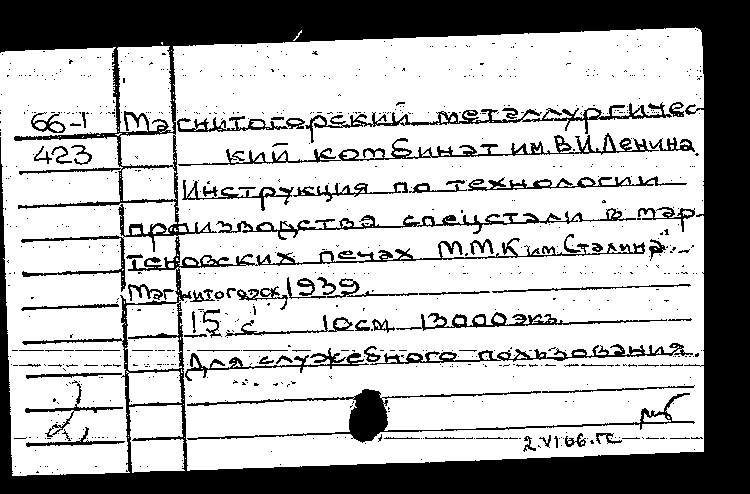 66-1 Магнитогорский металлургичес-
423 кий комбинат им. В.И. Ленина.
Инструкция по технологии
производства спецстали в мар-
теновских печах М.М.К им. Сталина".
Магнитогорск, 1939.
15 с. 10см 13000 экз.
Для служебного пользования.
2,
2.VI66.